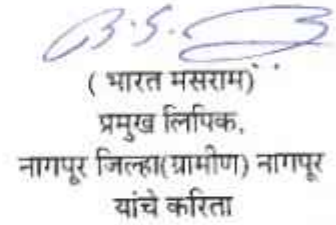 B.S.
( भारत मसराम)
प्रमुख लिपिक,
नागपूर जिल्हा(ग्रामीण) नागपूर
यांचे करिता